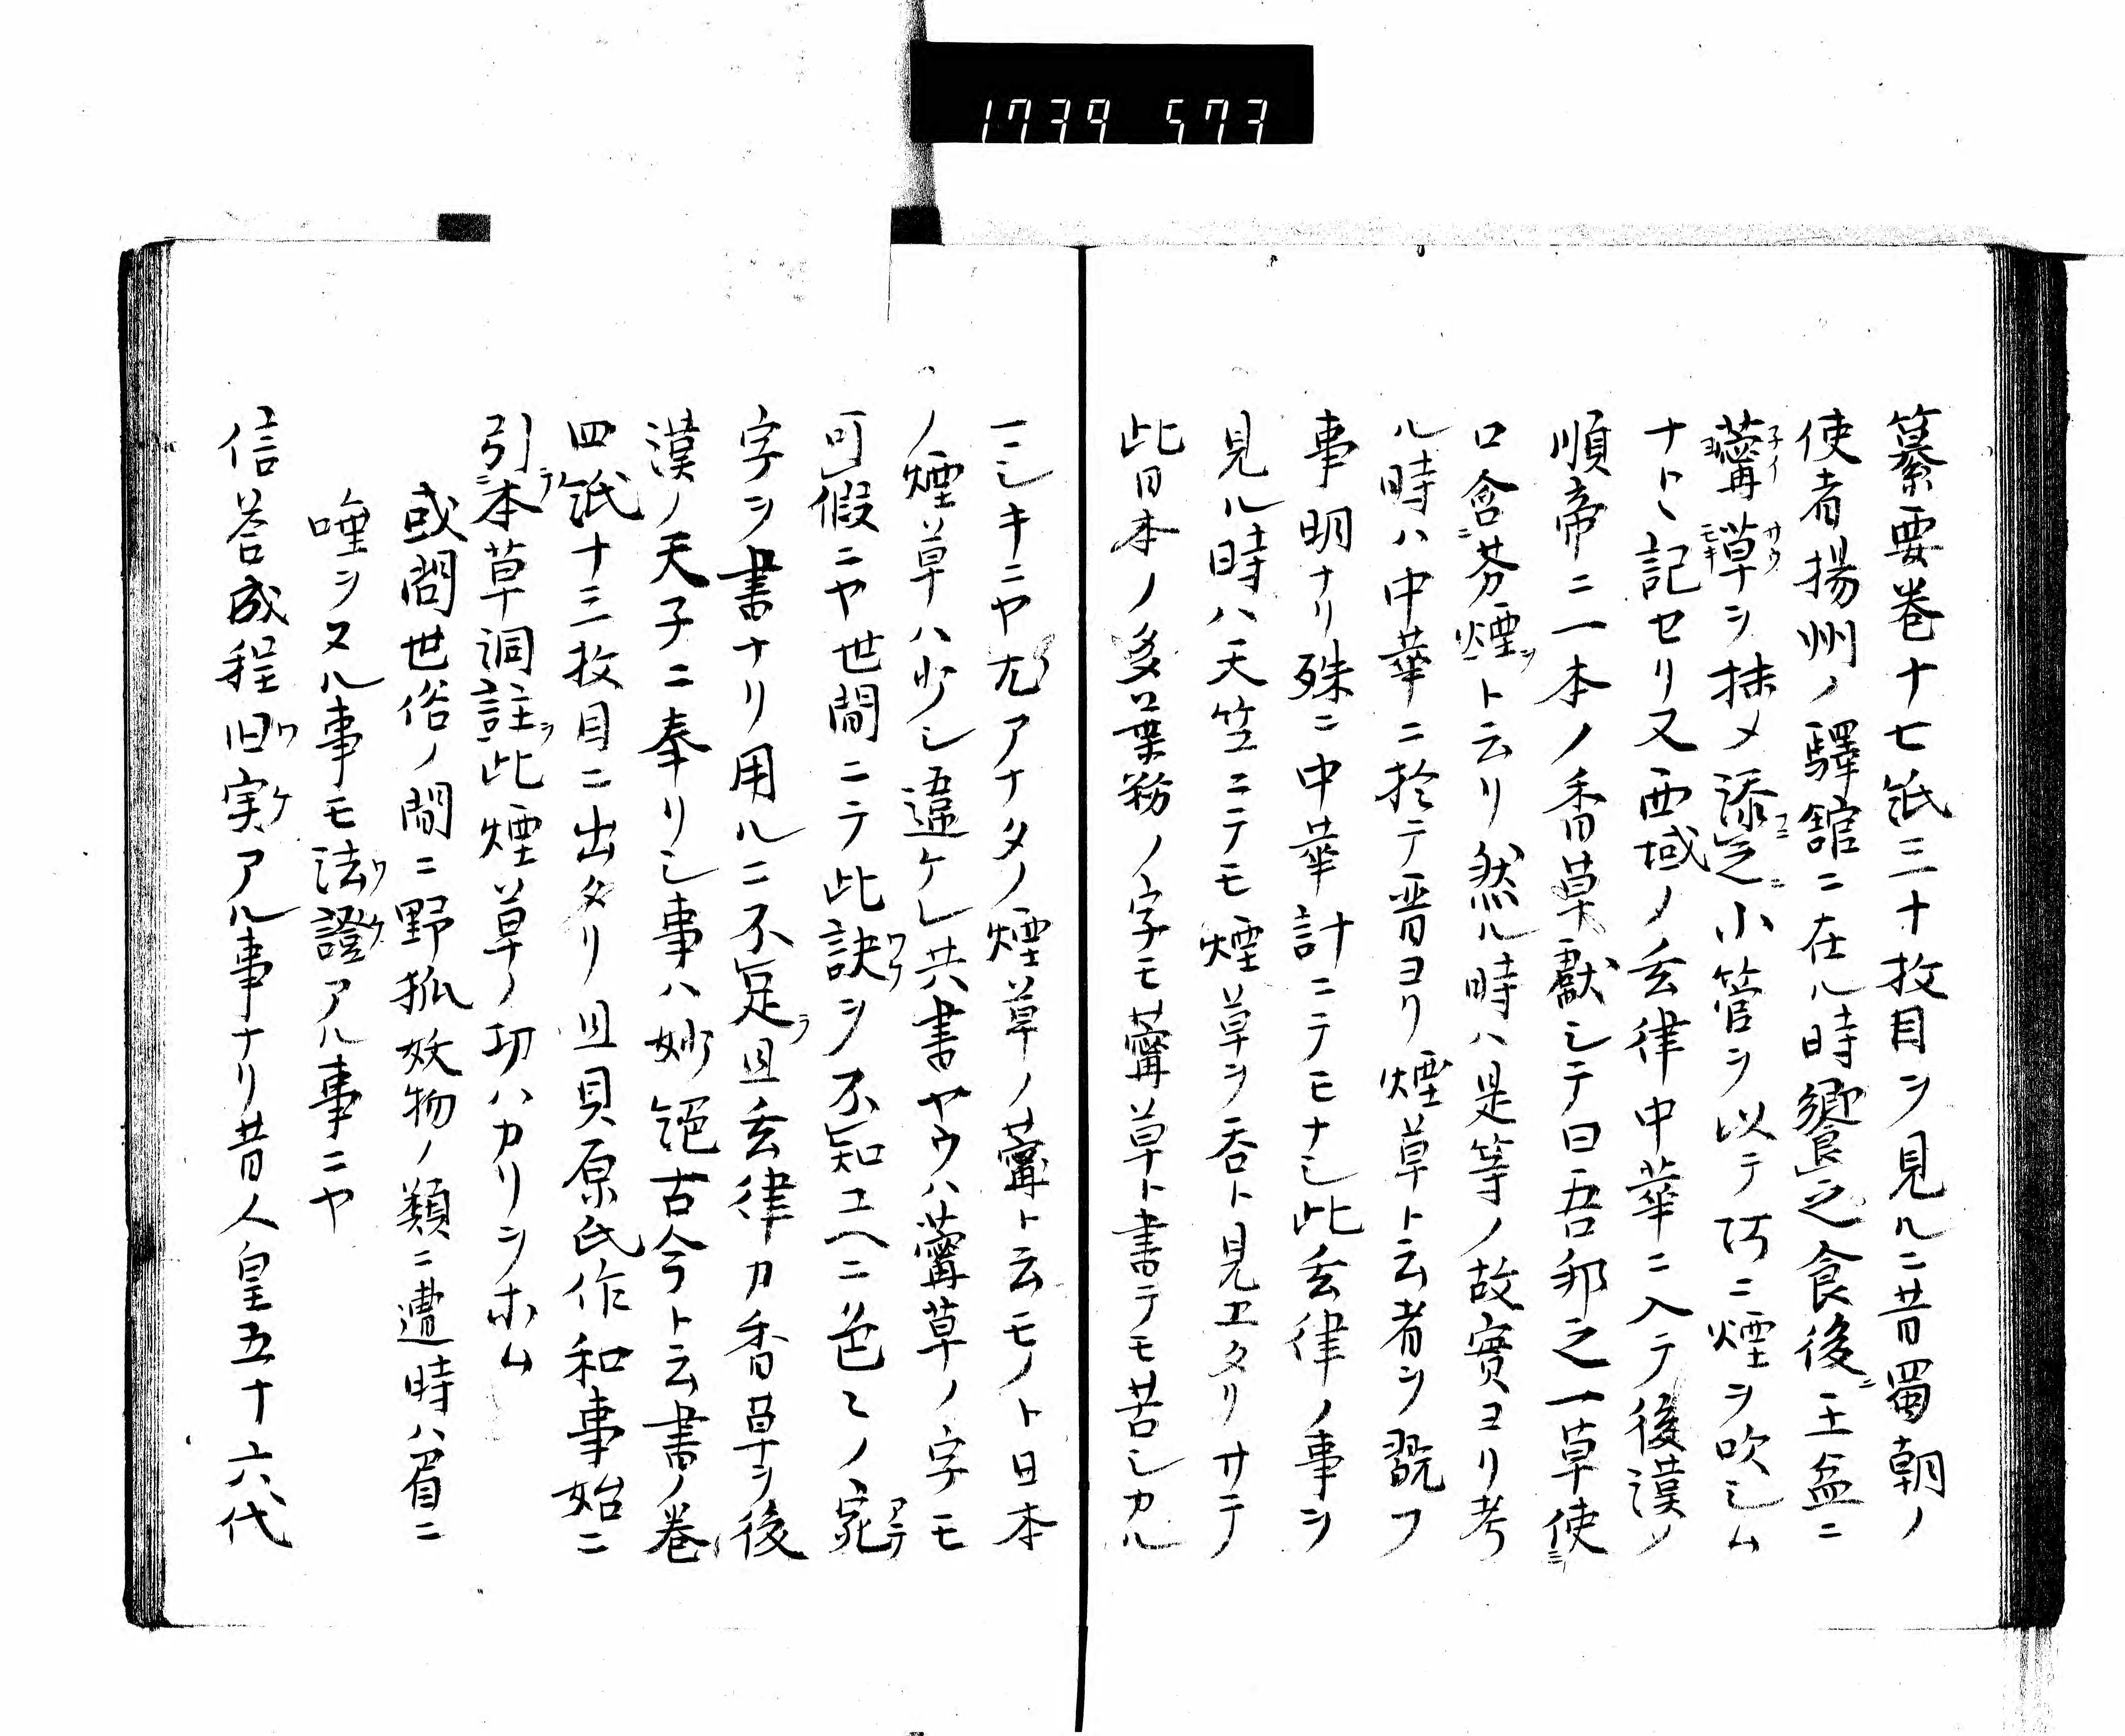 1739 573
纂要巻十七紙三十枚目ヲ見ルニ昔蜀朝ノ
使者揚州ノ驛舘ニ在ル時饗之食後ニ土盆ニ
薴草ヲ抹メ添之小管ヲ以テ訶ニ煙ヲ吹シム
ナトヽ記セリ又西域ノ玄律中華ニ入テ後漢ノ
順帝ニ一本ノ香草獻シテ曰吾邦之一草使
口含芬煙ト云リ然ル時ハ是等ノ故實ヨリ考
ル時ハ中華ニ於テ晋ヨリ煙草ト云者ヲ翫フ
事明ナリ殊ニ中華計ニテモナシ此玄律ノ事ヲ
見ル時ハ天竺ニテモ煙草ヲ呑ト見エタリサテ
此日本ノ多葉粉ノ字モ薴草ト書テモ苦シカル
マシキニヤ尤アナタノ煙草ノ薴ト云モノト日本
ノ煙草ハ少シ違ケレ共書ヤウハ薴草ノ字モ
可假ニヤ世間ニテ此訣ヲ不知ユヘニ色々ノ宛
字ヲ書ナリ用ルニ不足且玄律カ香草ヲ後
漢ノ天子ニ奉リシ事ハ妙絕古今ト云書ノ巻
四紙十三枚目ニ出タリ且貝原氏作和事始ニ
引本草洞註此煙草ノ功ハカリヲホム
或問世俗ノ間ニ野狐妖物ノ類ニ遭時ハ眉ニ
唾ヲヌル事モ法證アル事ニヤ
信荅成程旧実アル事ナリ昔人皇五十六代